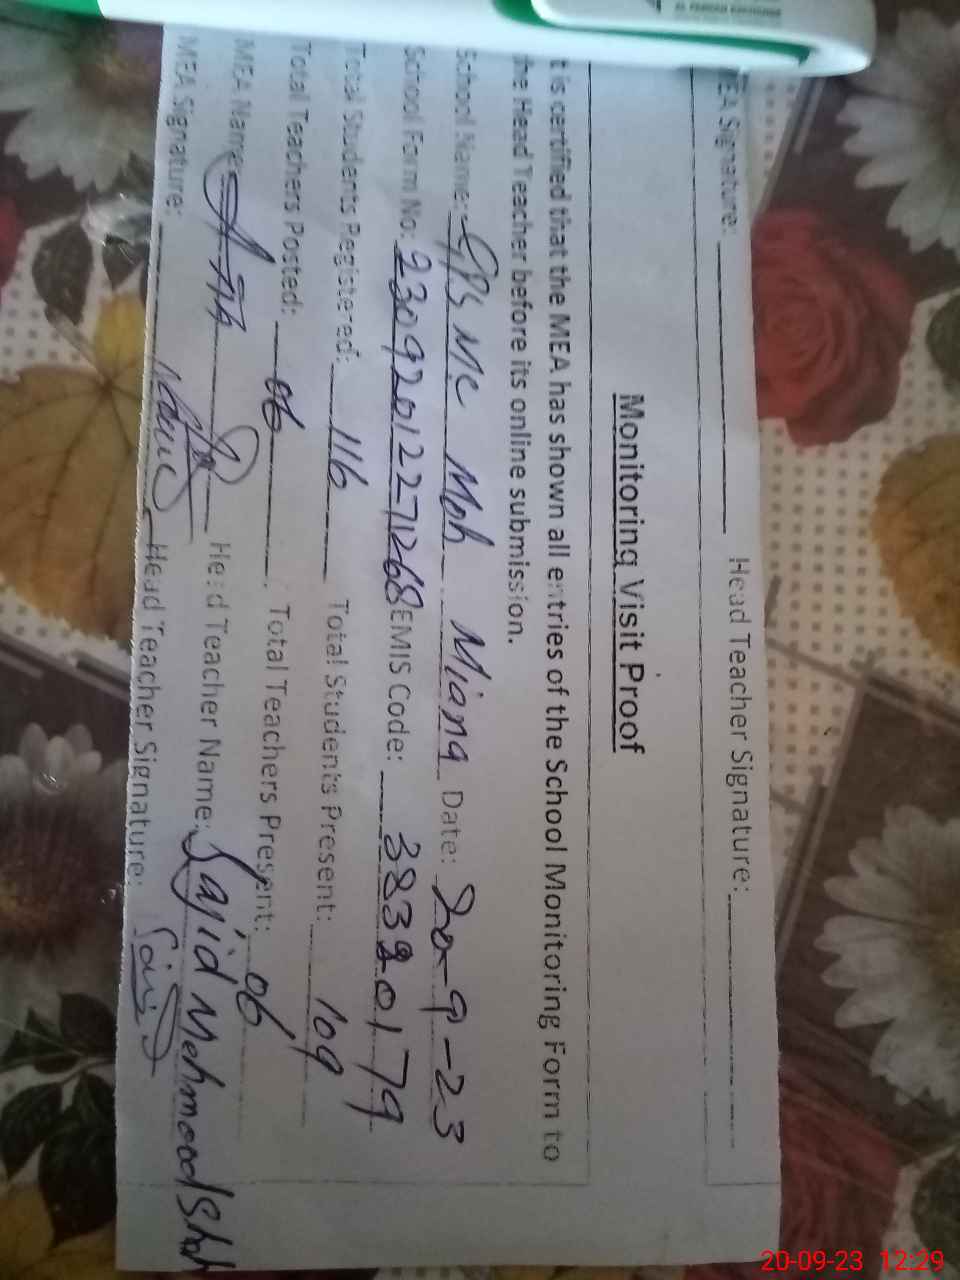 EA Signature: Head Teacher Signature:
Monitoring Visit Proof
t is certified that the MEA has shown all entries of the School Monitoring Form to
he Head Teacher before its online submission.
School Name: GPS MC Moh Miana Date: 20-9-23
School Form No: 23092012271268 EMIS Code: 38320179
Total Students Registered: 116 Total Students Present: 109
Total Teachers Posted: 06 Total Teachers Present: 06
MEA Name: Head Teacher Name: Sajid Mehmood Shah
MEA Signature: Head Teacher Signature:
20-09-23 12:29